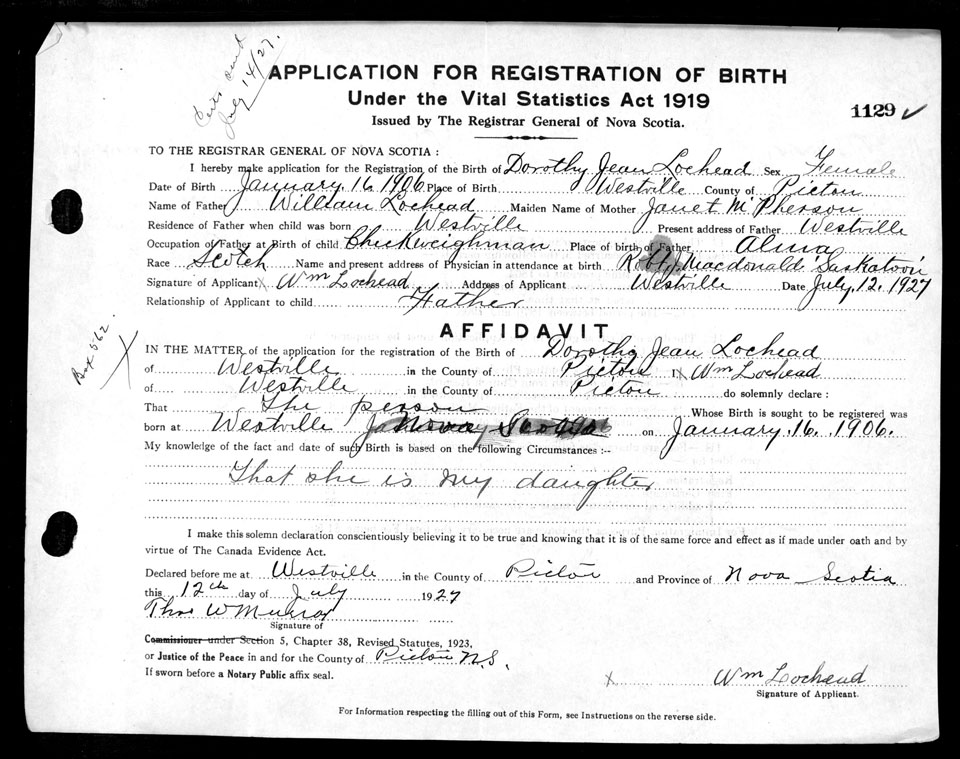 Certs sent
July 14/27.
APPLICATION FOR REGISTRATION OF BIRTH
Under the Vital Statistics Act 1919
1129 ✓
Issued by The Registrar General of Nova Scotia.
TO THE REGISTRAR GENERAL OF NOVA SCOTIA :
I hereby make application for the Registration of the Birth of Dorothy Jean Lochead Sex Female
Date of Birth January. 16. 1906 Place of Birth Westville County of Pictou
Name of Father William Lochead Maiden Name of Mother Janet McPherson
Residence of Father when child was born Westville Present address of Father Westville
Occupation of Father at Birth of child Checkweighman Place of birth of Father Alma
Race Scotch Name and present address of Physician in attendance at birth Macdonald Saskatoon
Signature of Applicant x Wm Lochead Address of Applicant Westville Date July, 12. 1927
Relationship of Applicant to child Father
Box 562.
AFFIDAVIT
IN THE MATTER of the application for the registration of the Birth of Dorothy Jean Lochead
of Westville in the County of Pictou I, x Wm Lochead
of Westville in the County of Pictou do solemnly declare :
That The person Whose Birth is sought to be registered was
born at Westville Nova Scotia on January. 16. 1906.
My knowledge of the fact and date of such Birth is based on the following Circumstances :--
That she is my daughter
I make this solemn declaration conscientiously believing it to be true and knowing that it is of the same force and effect as if made under oath and by
virtue of The Canada Evidence Act.
Declared before me at Westville in the County of Pictou and Province of Nova Scotia
this 12th day of July 1927
Thos W Munro
Signature of
Commissioner under Section 5, Chapter 38, Revised Statutes, 1923,
or Justice of the Peace in and for the County of Pictou N.S.
If sworn before a Notary Public affix seal.
x Wm Lochead
Signature of Applicant.
For Information respecting the filling out of this Form, see Instructions on the reverse side.